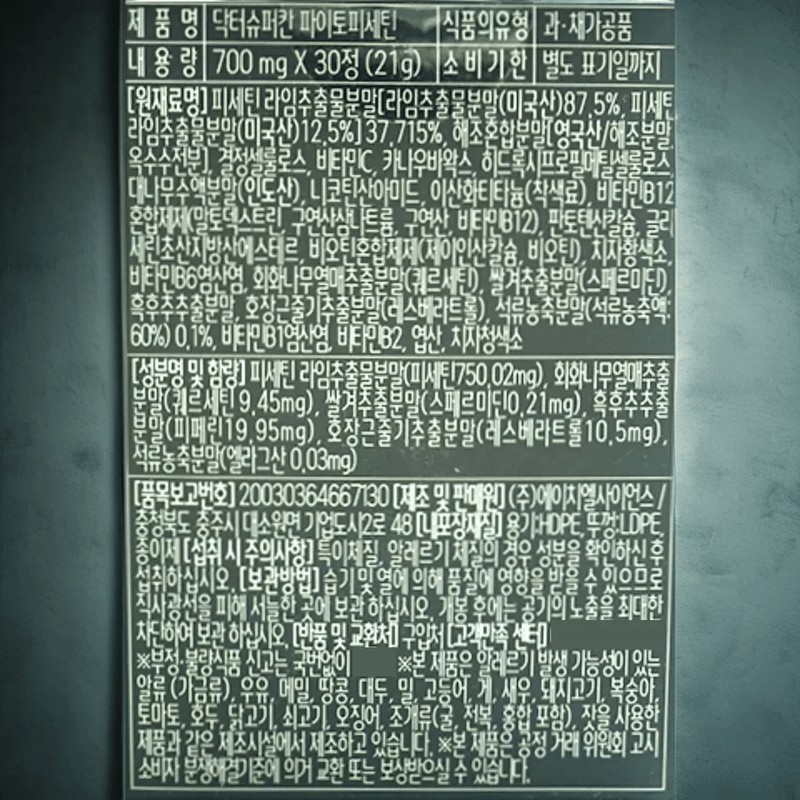 제 품 명 닥터슈퍼칸 파이토피세틴 식품의유형 과·채가공품
내 용 량 700 mg X 30정 (21g) 소 비 기 한 별도 표기일까지
[원재료명] 피세틴 라임추출물분말[라임추출물분말(미국산)87.5%, 피세틴
라임추출물분말(미국산)12.5%] 37.715%, 해조혼합분말[영국산/해조분말,
옥수수전분], 결정셀룰로스, 비타민C, 카나우바왁스, 히드록시프로필메틸셀룰로스,
대나무수액분말(인도산), 니코틴산아미드, 이산화티타늄(착색료), 비타민B12
혼합제제(말토덱스트린, 구연산삼나트륨, 구연산, 비타민B12), 판토텐산칼슘, 글리
세린초산지방산에스테르, 비오틴혼합제제(제이인산칼슘, 비오틴), 치자황색소,
비타민B6염산염, 회화나무열매추출분말(퀘르세틴), 쌀겨추출분말(스페르미딘),
흑후추추출분말, 호장근줄기추출분말(레스베라트롤), 석류농축분말(석류농축액
60%) 0.1%, 비타민B1염산염, 비타민B2, 엽산, 치자청색소
[성분명 및 함량] 피세틴 라임추출물분말(피세틴750.02mg), 회화나무열매추출
분말(퀘르세틴 9.45mg), 쌀겨추출분말(스페르미딘0.21mg), 흑후추추출
분말(피페린19.95mg), 호장근줄기추출분말(레스베라트롤10.5mg),
석류농축분말(엘라그산 0.03mg)
[품목보고번호] 20030364667130 [제조 및 판매원] (주)에이치엘사이언스 /
충청북도 충주시 대소원면 기업도시2로 48 [내포장재질] 용기:HDPE, 뚜껑:LDPE,
종이제 [섭취 시 주의사항] 특이체질, 알레르기 체질의 경우 성분을 확인하신 후
섭취하십시오. [보관방법] 습기 및 열에 의해 품질에 영향을 받을 수 있으므로
직사광선을 피해 서늘한 곳에 보관 하십시오. 개봉 후에는 공기의 노출을 최대한
차단하여 보관 하십시오. [반품 및 교환처] 구입처 [고객만족 센터]
※부정·불량식품 신고는 국번없이 ※본 제품은 알레르기 발생 가능성이 있는
알류 (가금류), 우유, 메밀, 땅콩, 대두, 밀, 고등어, 게, 새우, 돼지고기, 복숭아,
토마토, 호두, 닭고기, 쇠고기, 오징어, 조개류(굴, 전복, 홍합 포함), 잣을 사용한
제품과 같은 제조시설에서 제조하고 있습니다. ※본 제품은 공정 거래 위원회 고시
소비자 분쟁해결기준에 의거 교환 또는 보상받으실 수 있습니다.